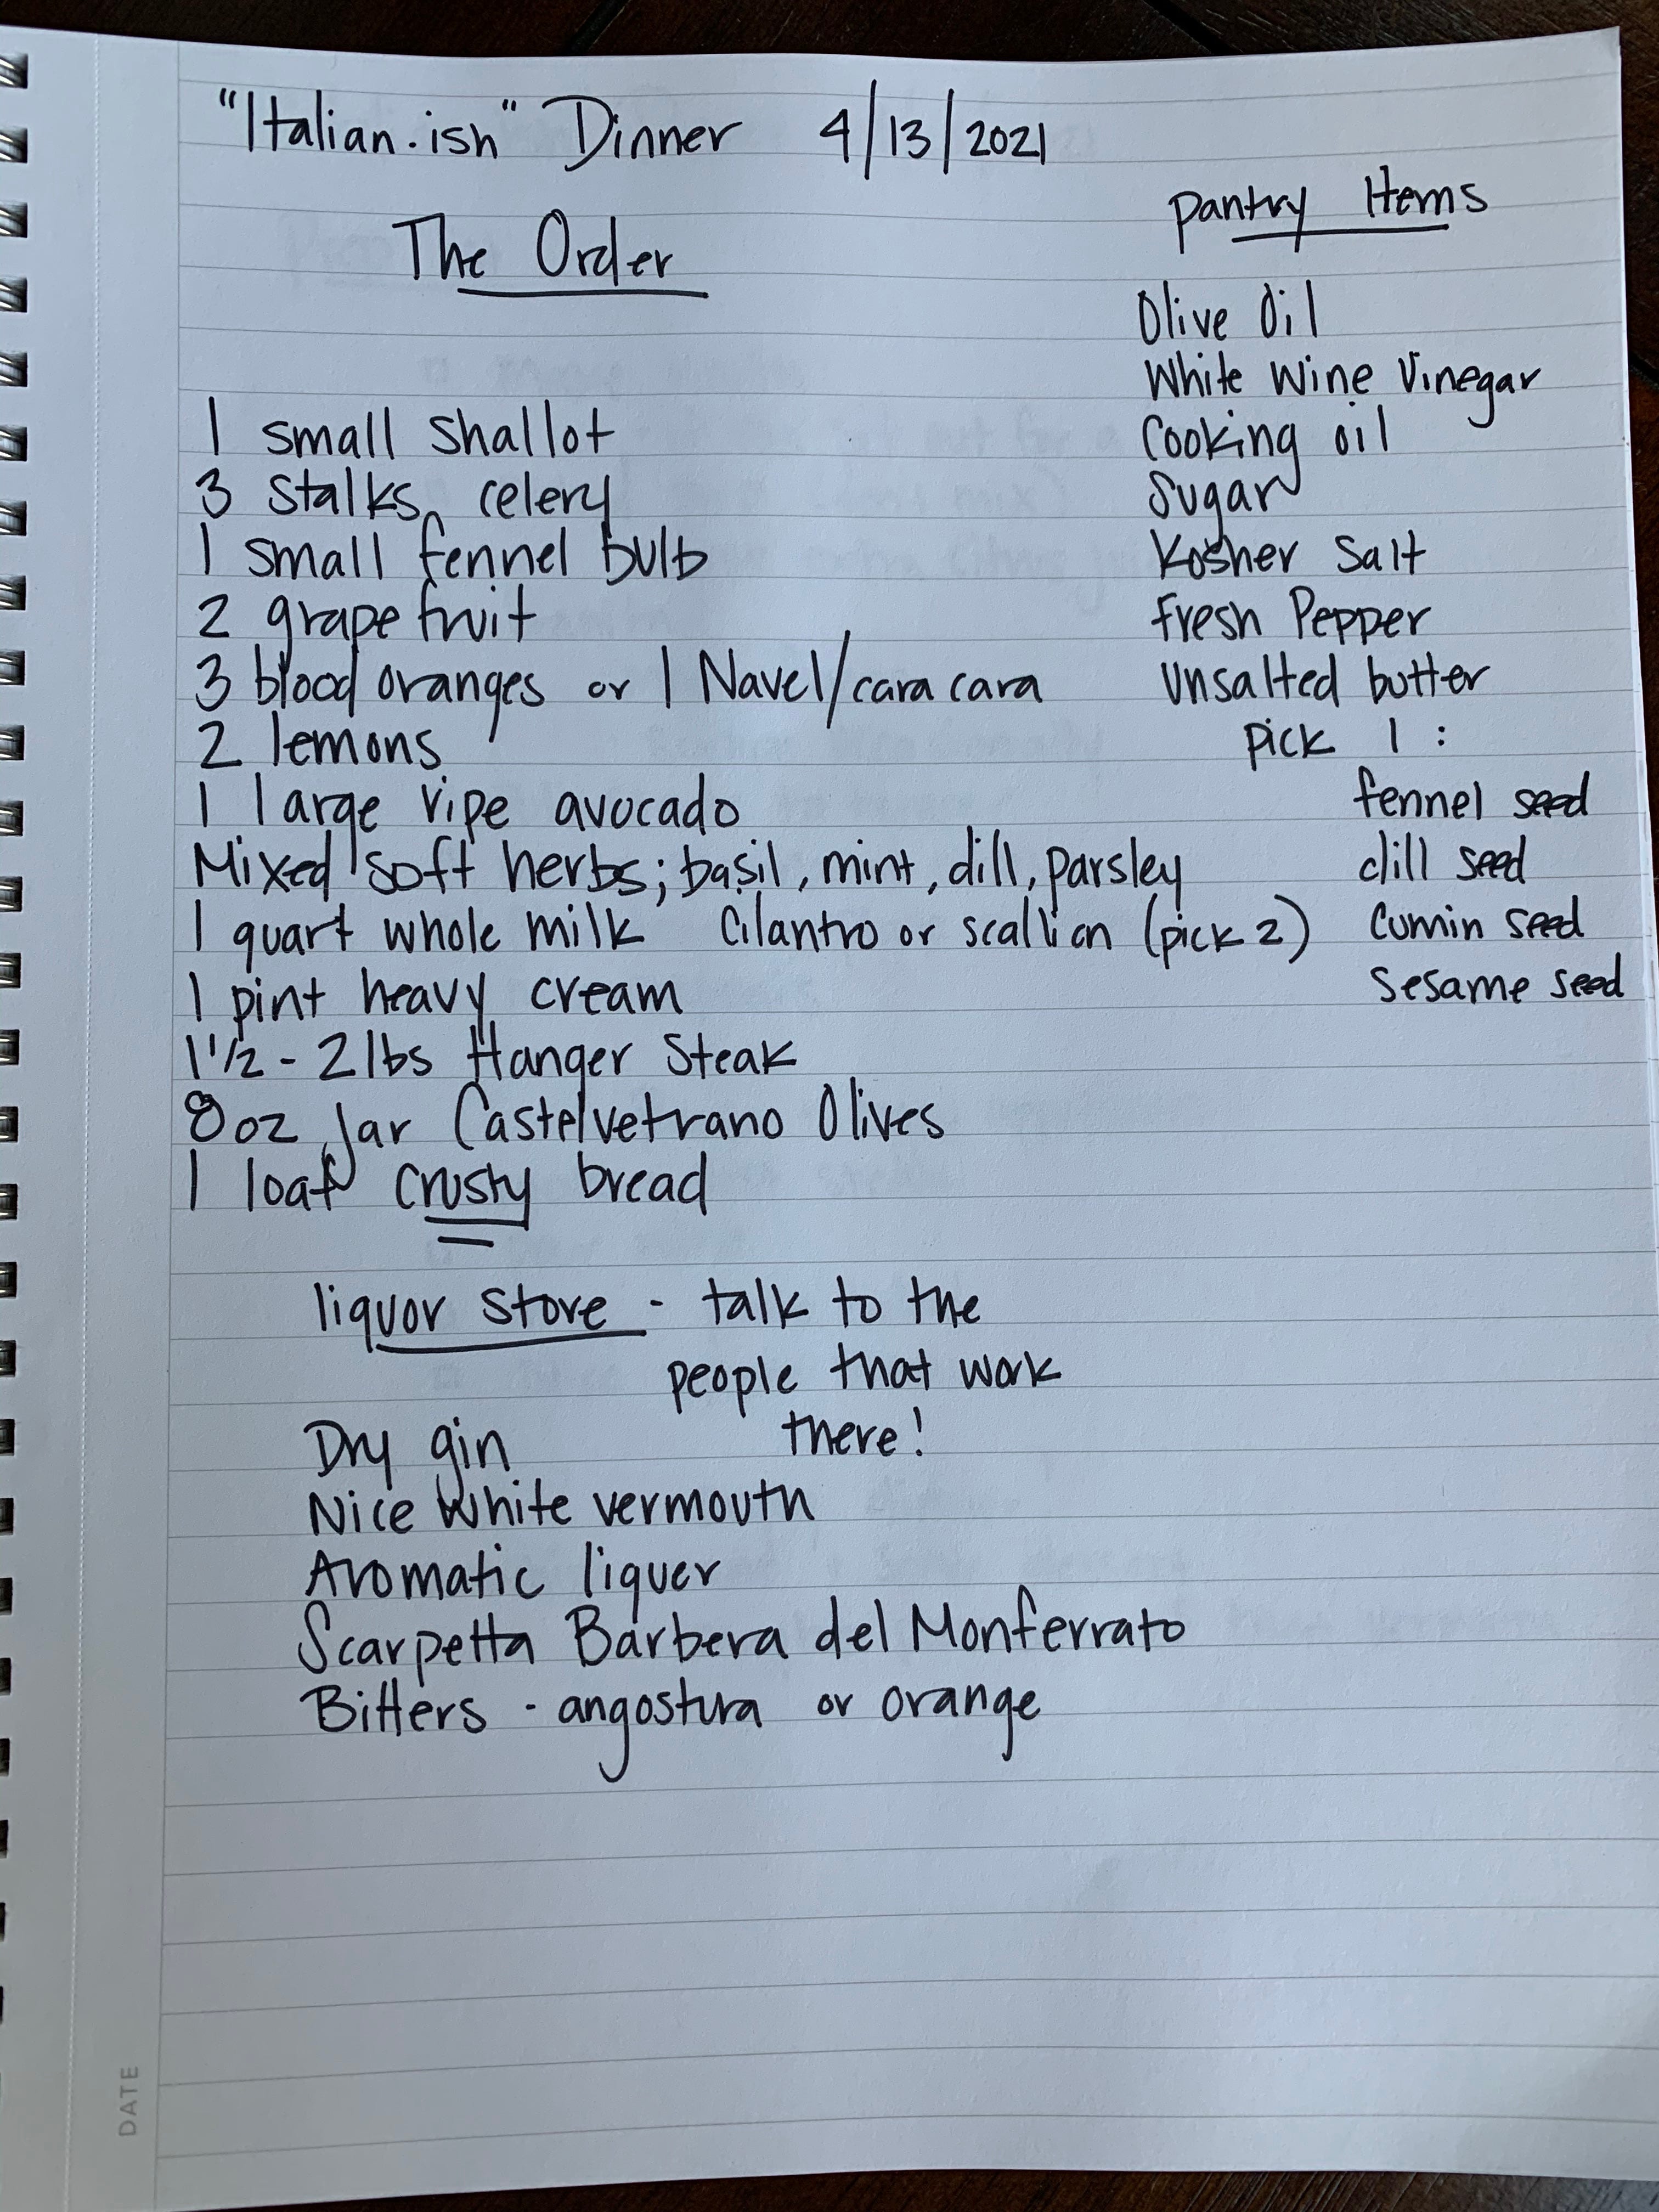 "Italian.ish" Dinner 4/13/2021
The Order
1 small shallot
3 stalks celery
1 small fennel bulb
2 grapefruit
3 blood oranges or 1 Navel/cara cara
2 lemons
1 large ripe avocado
Mixed soft herbs; basil, mint, dill, parsley
1 quart whole milk Cilantro or scallion (pick 2)
1 pint heavy cream
1 1/2 - 2 lbs Hanger Steak
8oz Jar Castelvetrano Olives
1 loaf crusty bread
Pantry Items
Olive Oil
White Wine Vinegar
Cooking oil
Sugar
Kosher Salt
Fresh Pepper
Unsalted butter
pick 1:
fennel seed
dill seed
Cumin seed
Sesame seed
liquor store - talk to the
people that work
there!
Dry gin
Nice White vermouth
Aromatic liquer
Scarpetta Barbera del Monferrato
Bitters - angostura or orange
DATE